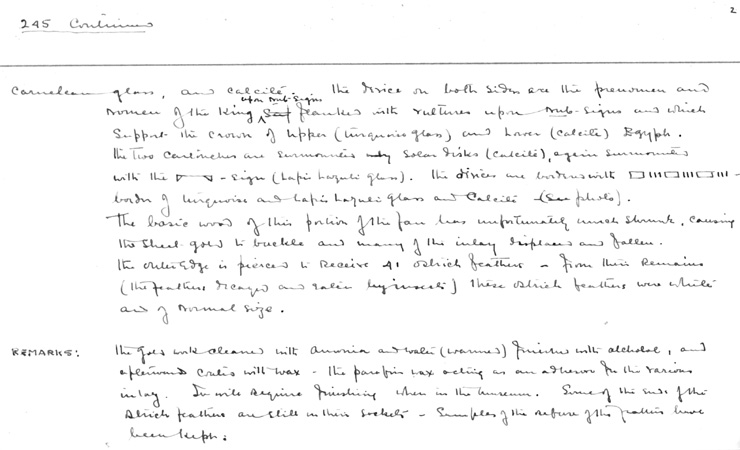 2
245 Continued
Carnelian glass, and calcite. The device on both sides are the prenomen and
upon Nub-Signs
Nomen of the King flanked with vultures upon Nub-Signs and which
Support the crown of Upper (turquoise glass) and Lower (calcite) Egypt.
The two Cartouches are surmounted by Solar disks (calcite), again surmounted
with the -Sign (lapis lazuli glass). The devices are bordered with
border of turquoise and lapis lazuli glass and calcite - (See photo).
The basic wood of this portion of the fan has unfortunately much shrunk, causing
the sheet-gold to buckle and many of the inlay displaced and fallen.
The outer edge is pierced to receive 41 ostrich feathers - from their remains
(the feathers decayed and eaten by insects) these ostrich feathers were white
and of normal size.
REMARKS: The gold work cleaned with ammonia and water (warmed) finished with alcohol, and
afterwards coated with wax - the parafin wax acting as an adhesor for the various
inlay. It will require finishing when in the museum. Some of the ends of the
ostrich feathers are still in their sockets - Samples of the refuse of the feathers have
been kept.